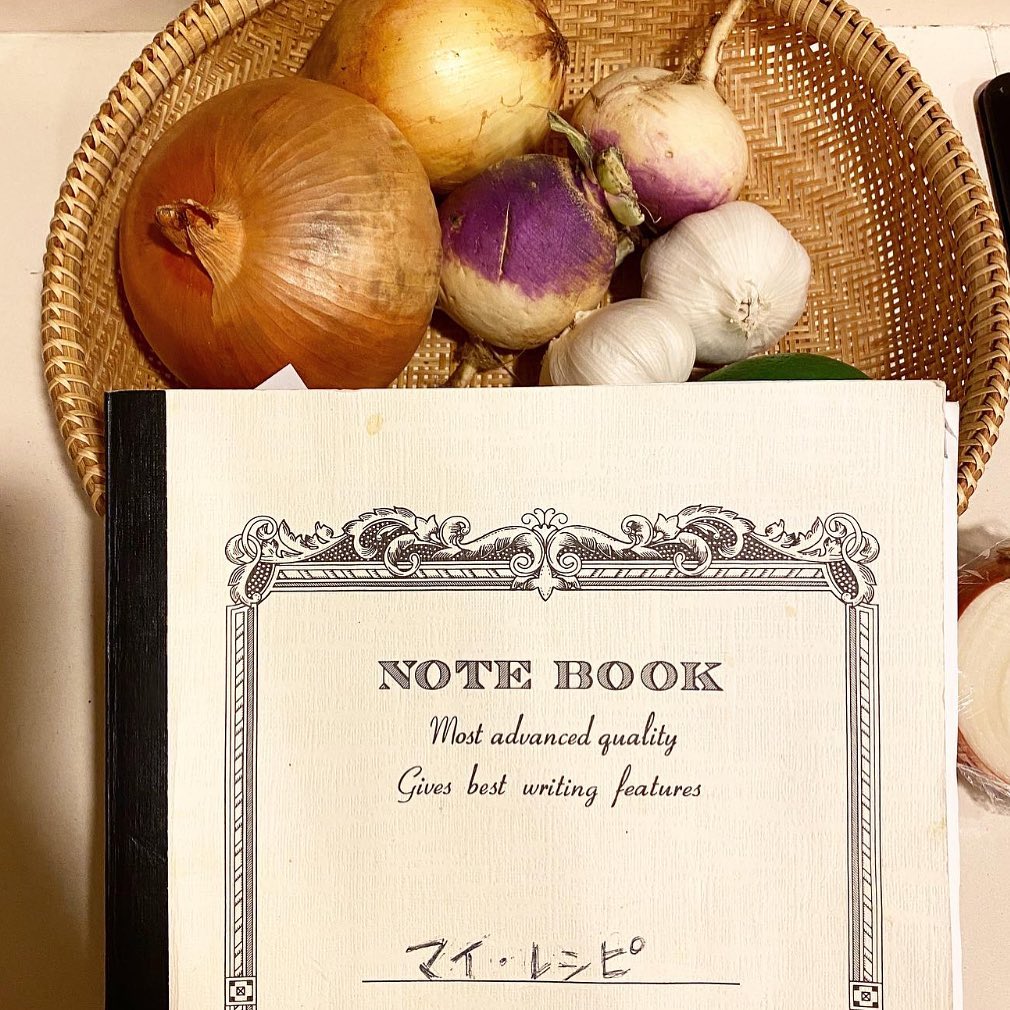 NOTE BOOK
Most advanced quality
Gives best writing features
マイ・レシピ